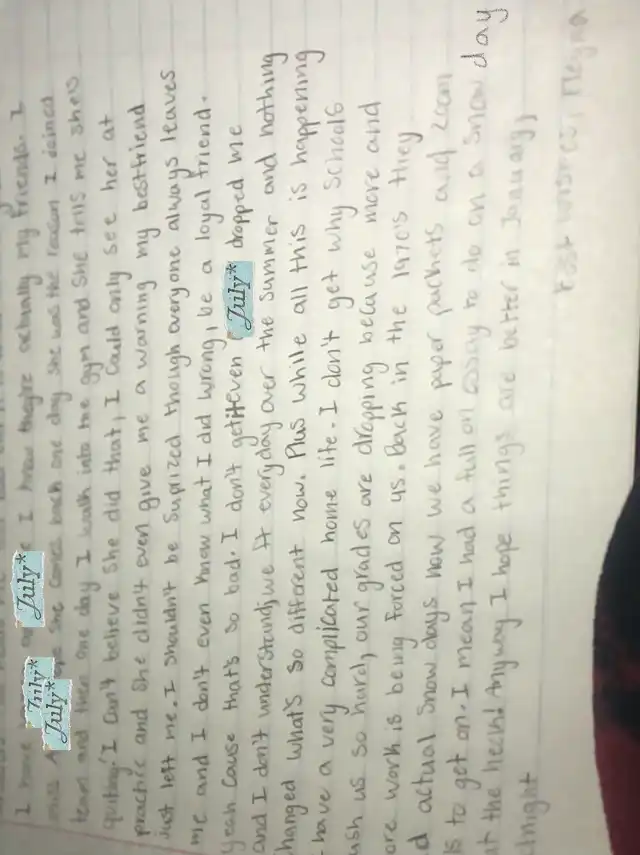 I know they're actually my friends. I
July*
I hope she comes back one day. She was the reason I joined
July* July*
team and then one day I walk into the gym and she tells me she's
quiting! I can't believe she did that, I could only see her at
practice and she didn't even give me a warning my bestfriend
Just left me. I shouldn't be suprized though everyone always leaves
me and I don't even know what I did wrong, be a loyal friend.
Yeah Cause that's so bad. I don't get it even July* dropped me
and I don't understand, we ft everyday over the summer and nothing
hanged what's so different now. Plus while all this is happening
have a very complicated home life. I don't get why schools
ush us so hard, our grades are dropping because more and
ore work is being forced on us. Back in the 1970's they
d actual snow days now we have paper packets and zoom
ls to get on. I mean I had a full on essay to do on a snow day
at the heck! Anyway I hope things are better in January,
dnight